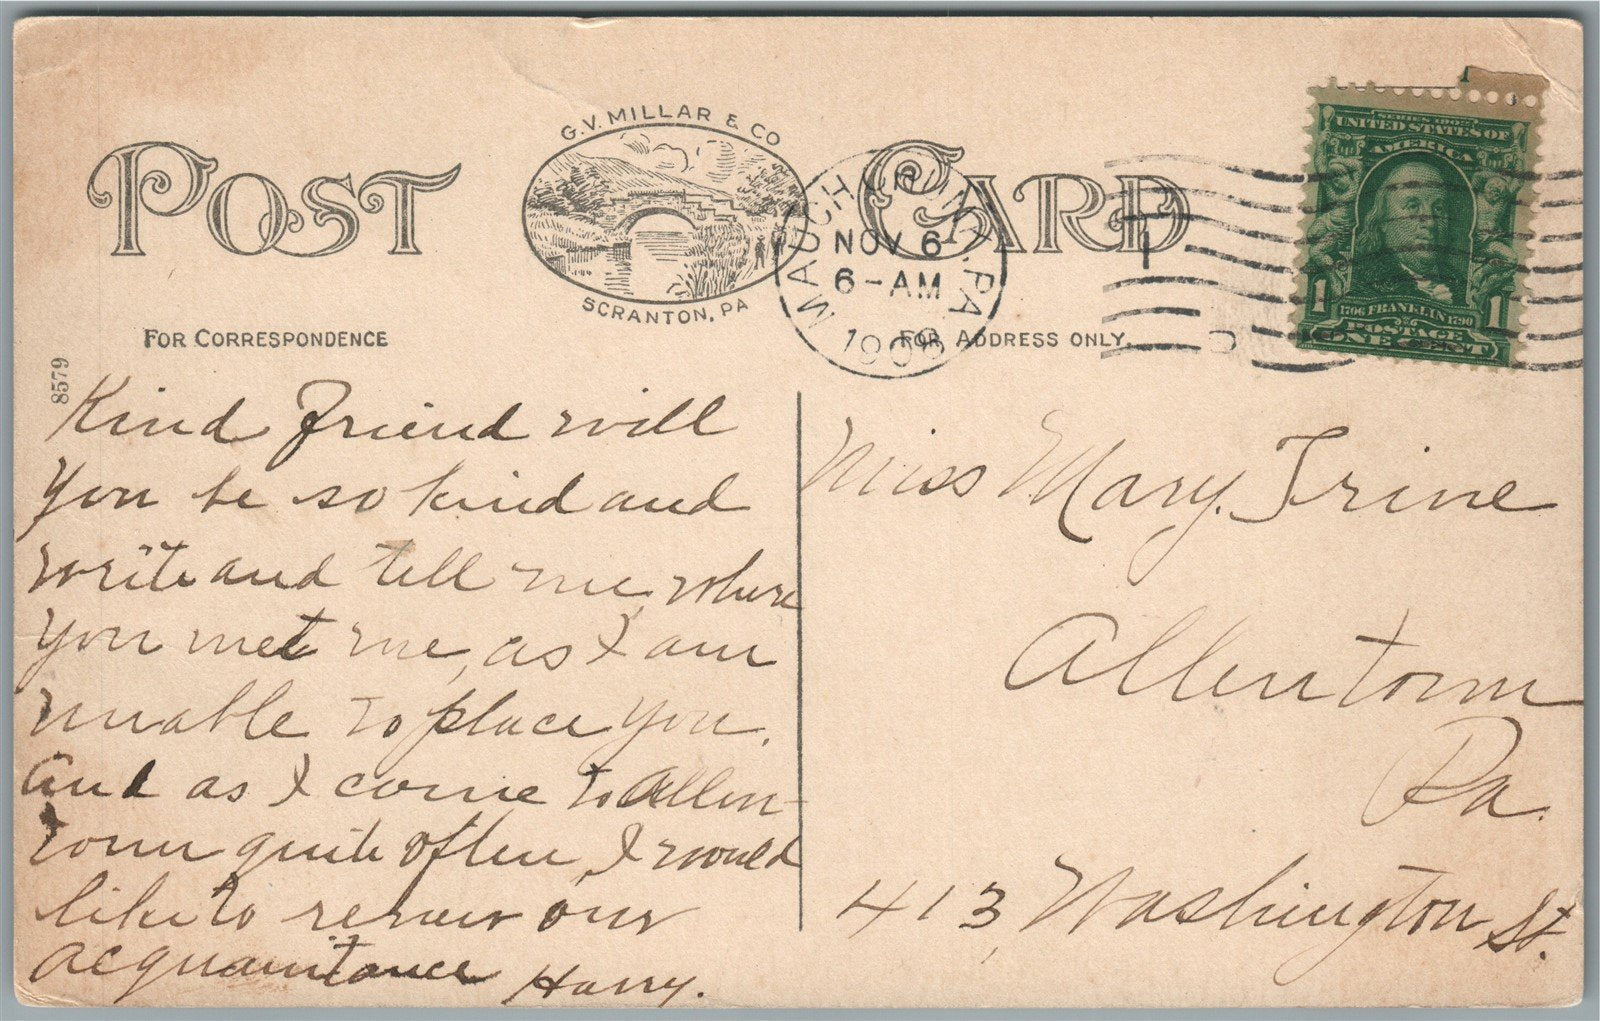 POST CARD
G.V. MILLAR & CO
SCRANTON, PA
MAUCH CHUNK, PA
NOV 6
6-AM
1908
SERIES 1902
UNITED STATES OF
AMERICA
1706 FRANKLIN 1790
POSTAGE
1 ONE CENT 1
FOR CORRESPONDENCE
FOR ADDRESS ONLY.
8579
Kind friend will
you be so kind and
write and tell me where
you met me, as I am
unable to place you.
And as I come to Allen-
town quite often, I would
like to renew our
acquaintance Harry.
Miss Mary. Trine
Allentown
Pa.
413, Washington St.